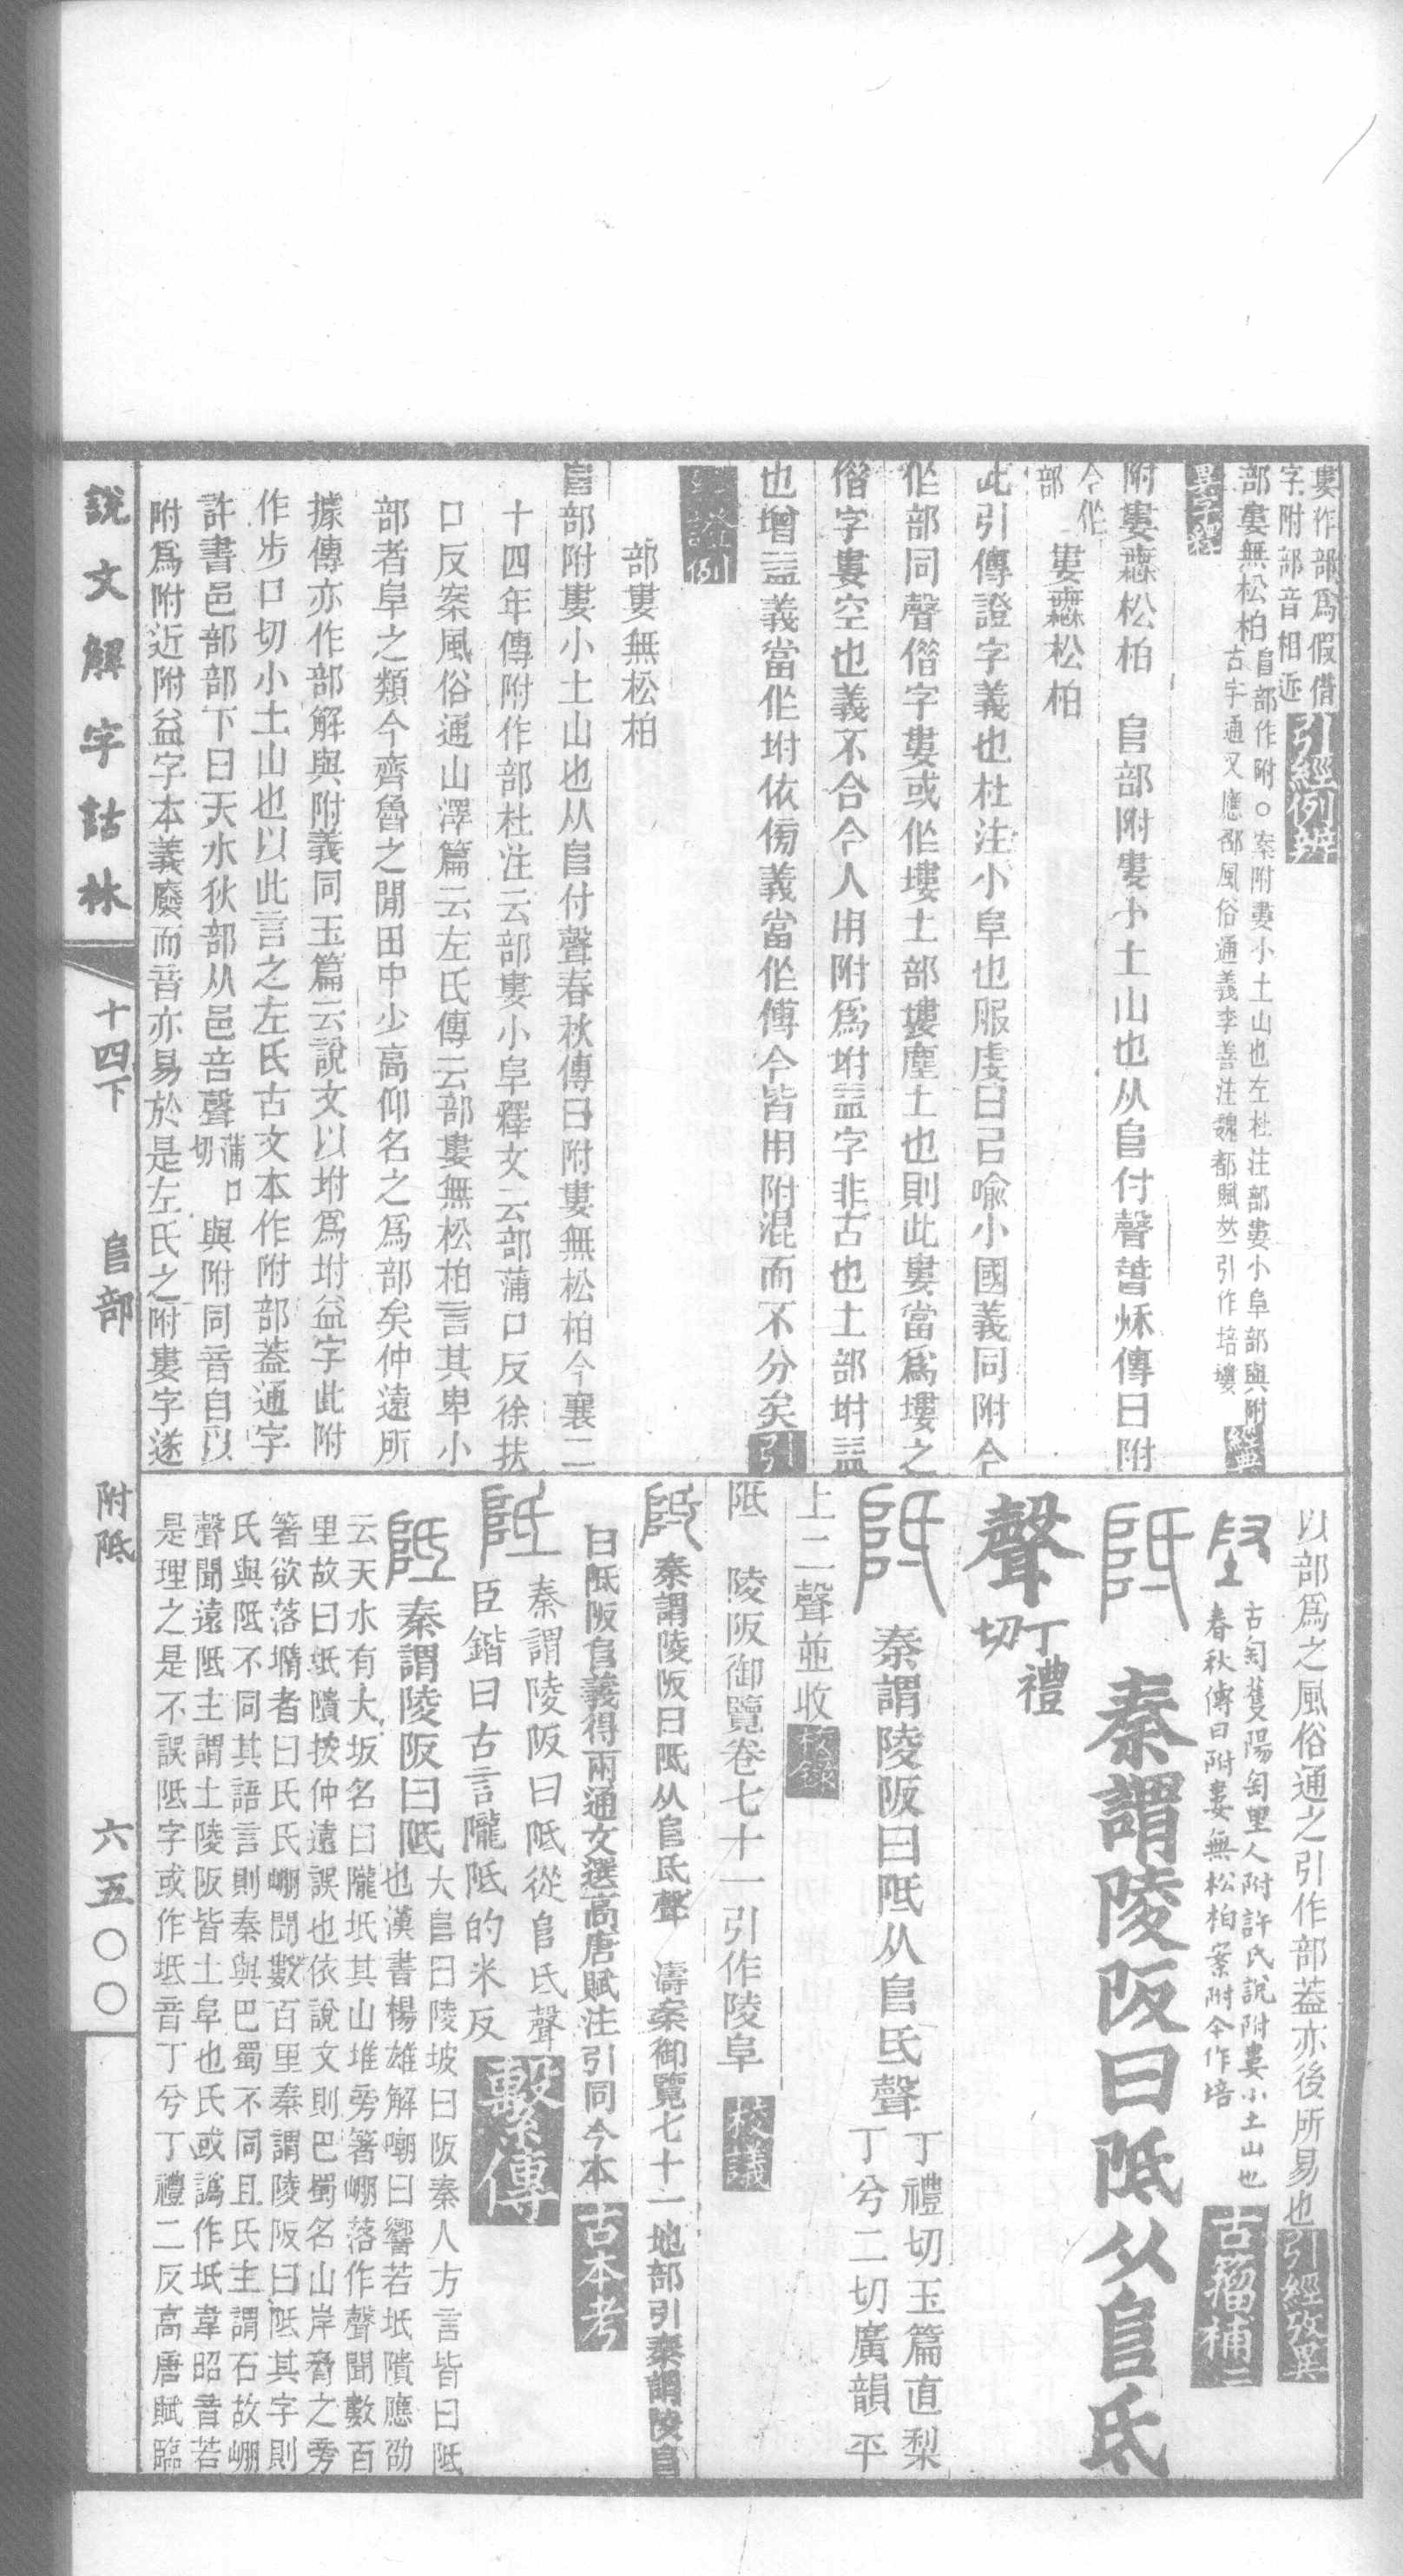 婁作部爲假借
字附部音相近
引經例辨
部婁無松柏
𨸏部作附○案附婁小土山也左杜注部婁小阜部與附
古字通又應邵風俗通義李善注魏都賦竝引作培塿
附婁𣞤松柏　𨸏部附婁小土山也从𨸏付聲萅秌傳曰附
婁𣞤松柏
今㑅
部
此引傳證字義也杜注小阜也服虔曰㠯喻小國義同附今
㑅部同聲偕字婁或㑅塿土部塿塵土也則此婁當爲塿之
偕字婁空也義不合今人用附爲坿益字非古也土部坿益
也增益義當㑅坿依傍義當㑅傅今皆用附混而不分矣
部婁無松柏
𨸏部附婁小土山也从𨸏付聲春秋傳曰附婁無松柏今襄二
十四年傳附作部杜注云部婁小阜釋文云部蒲口反徐扶
口反案風俗通山澤篇云左氏傳云部婁無松柏言其卑小
部者阜之類今齊魯之閒田中少高仰名之爲部矣仲遠所
據傳亦作部解與附義同玉篇云說文以坿爲坿益字此附
作步口切小土山也以此言之左氏古文本作附部蓋通字
許書邑部部下曰天水狄部从邑咅聲蒲口切與附同音自以
附爲附近附益字本義廢而音亦易於是左氏之附婁字遂
以部爲之風俗通之引作部蓋亦後所易也
引經攷異
古匋隻陽匋里人附許氏說附婁小土山也
春秋傳曰附婁無松柏案附今作培
古籀補
秦謂陵阪曰阺从𨸏氐
聲
丁禮
切
秦謂陵阪曰阺从𨸏氐聲
丁禮切玉篇直梨
丁兮二切廣韻平
上二聲並收
校錄
阺　陵阪御覽卷七十一引作陵阜
校議
秦謂陵阪曰阺从𨸏氐聲　濤案御覽七十一地部引秦謂陵𨸏
曰阺阪𨸏義得兩通文選高唐賦注引同今本
古本考
秦謂陵阪曰阺從𨸏氐聲
臣鍇曰古言隴阺的米反
繫傳
秦謂陵阪曰阺
大𨸏曰陵坡曰阪秦人方言皆曰阺
也漢書楊雄解嘲曰響若坻隤應劭
云天水有大坂名曰隴坻其山堆旁箸崩落作聲聞數百
里故曰坻隤按仲遠誤也依說文則巴蜀名山岸脅之旁
箸欲落墮者曰氏氏崩聞數百里秦謂陵阪曰阺其字則
氏與阺不同其語言則秦與巴蜀不同且氏主謂石故崩
聲聞遠阺主謂土陵阪皆土阜也氏或譌作坻韋昭音若
是理之是不誤阺字或作坻音丁兮丁禮二反高唐賦臨
說文解字詁林
十四下
𨸏部
附阺
六五〇〇